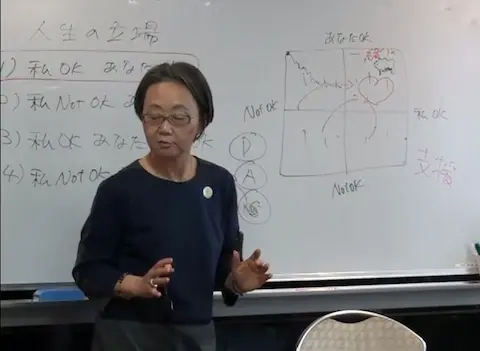 人生の立場
1) 私OK あなた
2) 私Not OK あ
3) 私OK あなた
4) 私Not OK
あなたOK
Not OK
私OK
Not OK
P
A